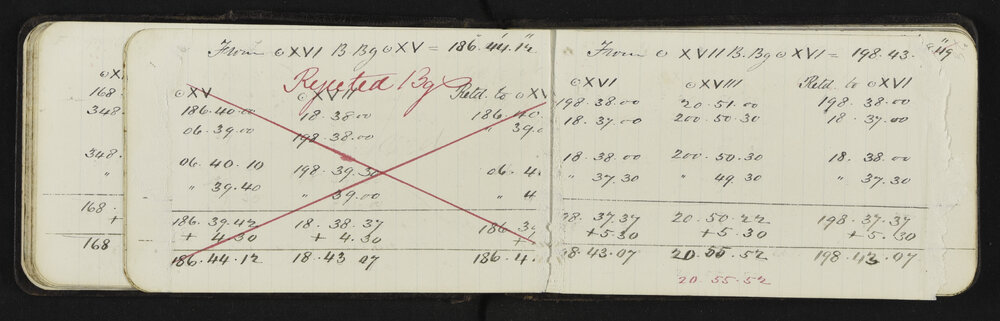 From ⊙ XVI B. Bg ⊙ XV = 186.44.12
Rejected Bg
⊙ XV Retd. to ⊙ XV
186.40.00 18.38.00 186.40.
06.39.00 198.38.00 " 39.0
06.40.10 198.39.30 06.4
" 39.40 " 39.00 " 4
186.39.42 18.38.37 186.39
+ 4.30 + 4.30 +
186.44.12 18.43 07 186.4.
From ⊙ XVII B. Bg ⊙ XVI = 198.43. 49
⊙ XVI ⊙ XVIII Retd. to ⊙ XVI
198.38.00 20.51.00 198.38.00
18.37.00 200.50.30 18.37.00
18.38.00 200.50.30 18.38.00
" 37.30 " 49.30 " 37.30
98.37.37 20.50.22 198.37.37
+5.30 +5.30 +5.30
8.43.07 20.55.52 198.43.07
20.55.52
⊙ X
168
348.
348.
"
168.
+
168